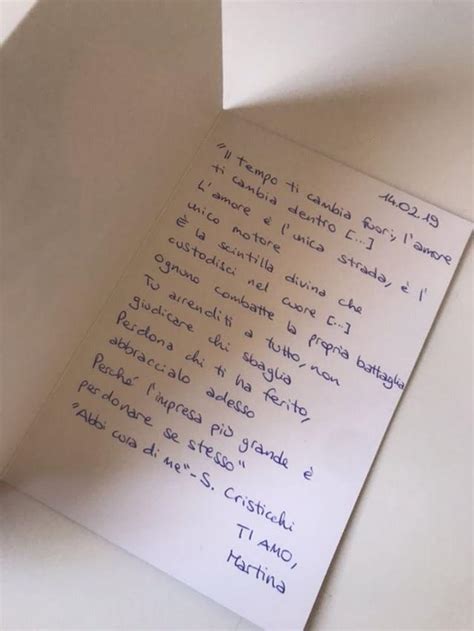 14.02.19
"Il tempo ti cambia fuori, l'amore
ti cambia dentro [...]
L'amore è l'unica strada, è l'
unico motore
è la scintilla divina che
custodisci nel cuore [...]
ognuno combatte la propria battaglia
Tu arrenditi a tutto, non
giudicare chi sbaglia
Perdona chi ti ha ferito,
abbraccialo adesso
Perché l'impresa più grande è
perdonare se stesso"
"Abbi cura di me" - S. Cristicchi
TI AMO,
Martina